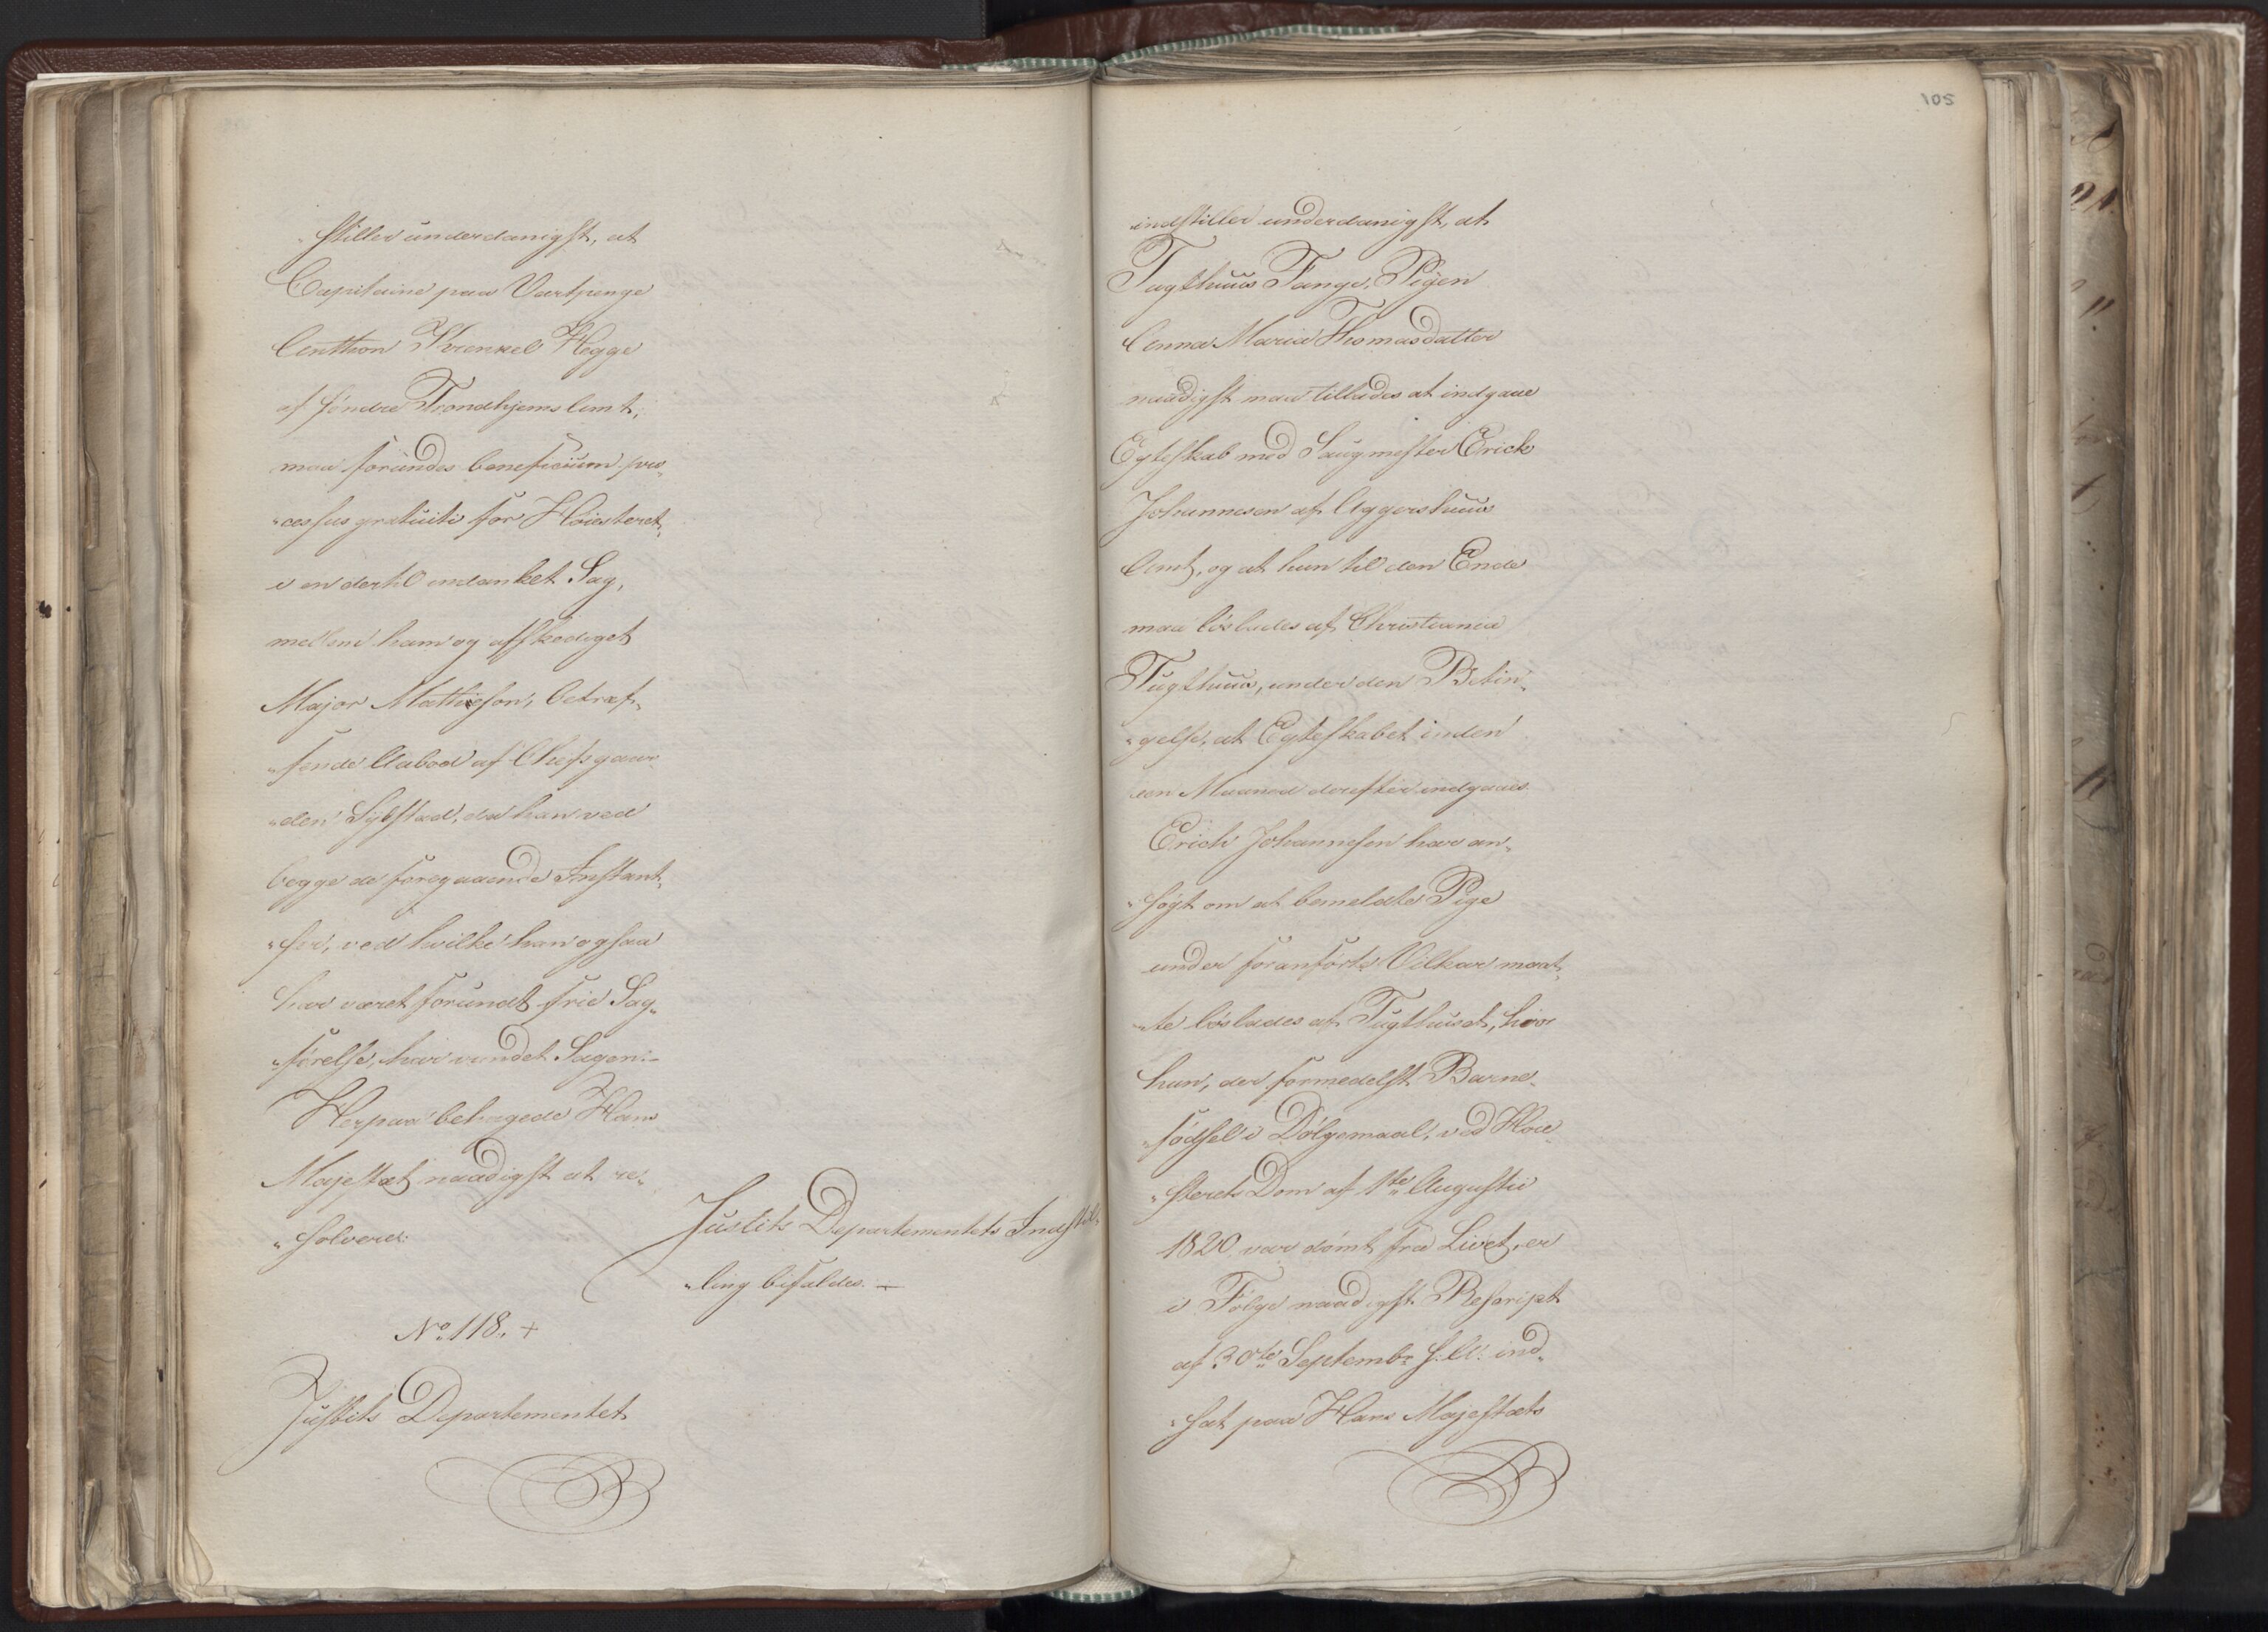 „stiller underdanigst, at
Capitaine paa Vartpenge
Anthon Wrenkel Hegge
af söndre Trondhjems Amt,
maa forundes beneficium pro„
„cessus gratuiti for Höiesteret,
i en dertil indanket Sag,
mellem ham og afskediget
Major Mathieson, betref„
„fende Aabod af Chefsgaar„
„den Sybstad, da han ved
begge de foregaaende Instant„
„ser, ved hvilke han ogsaa
har været forundt frie Sag„
„förelse, har vundet Sagen.–
Herpaa behagede Hans
Majestæt naadigst at re„
„solvere:
Justits Departementets Indstil„
„ling bifaldes. –
No. 118. +
Justits Departementet
105
indstiller underdanigst, at
Tugthuus Fange, Pigen
Anna Maria Thomasdatter
naadigst maa tillades at indgaae
Egteskab med Saugmester Erich
Johannesen af Aggershuus
Amt, og at hun til den Ende
maa löslades af Christiania
Tugthuus, under den Betin„
„gelse, at Egteskabet inden
een Maaned derefter indgaaes.
Erich Johannesen har an„
„sögt om at bemeldte Pige
under foranförte Vilkaar maat„
„te löslades af Tugthuset, hvor
hun, der formedelst Barne„
„födsel i Dölgsmaal, ved Höie„
„sterets Dom af 1ste Augusti
1820 var dömt fra Livet, er
i Fölge naadigst Rescript
af 30te Septembr s. A. ind„
„sat paa Hans Majestæts